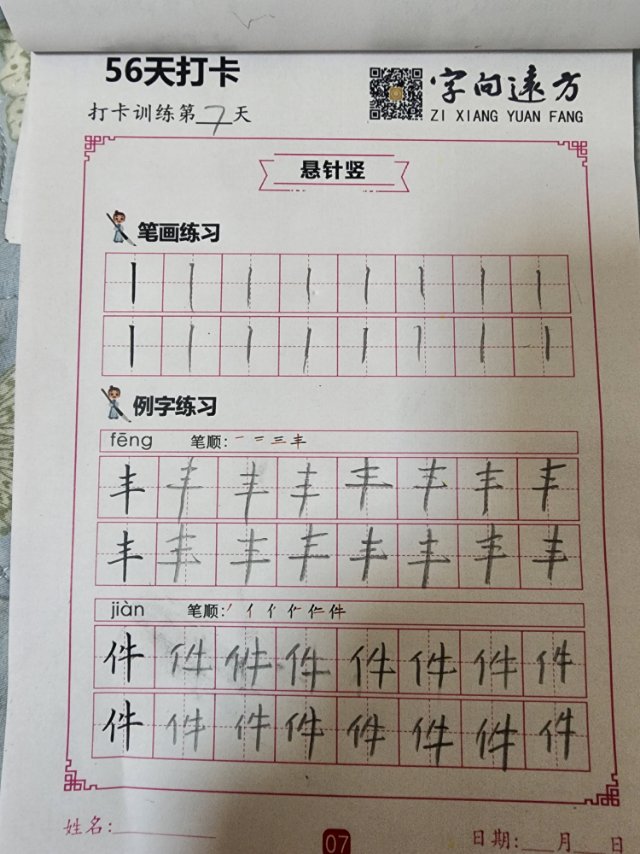 56天打卡
字向远方
打卡训练第7天
ZI XIANG YUAN FANG
悬针竖
笔画练习
丨 丨 丨 丨 丨 丨 丨 丨
丨 丨 丨 丨 丨 丨 丨 丨
例字练习
fēng 笔顺: 一 二 三 丰
丰 丰 丰 丰 丰 丰 丰 丰
丰 丰 丰 丰 丰 丰 丰 丰
jiàn 笔顺:
件 件 件 件 件 件 件 件
件 件 件 件 件 件 件 件
姓名:
07
日期: 月 日